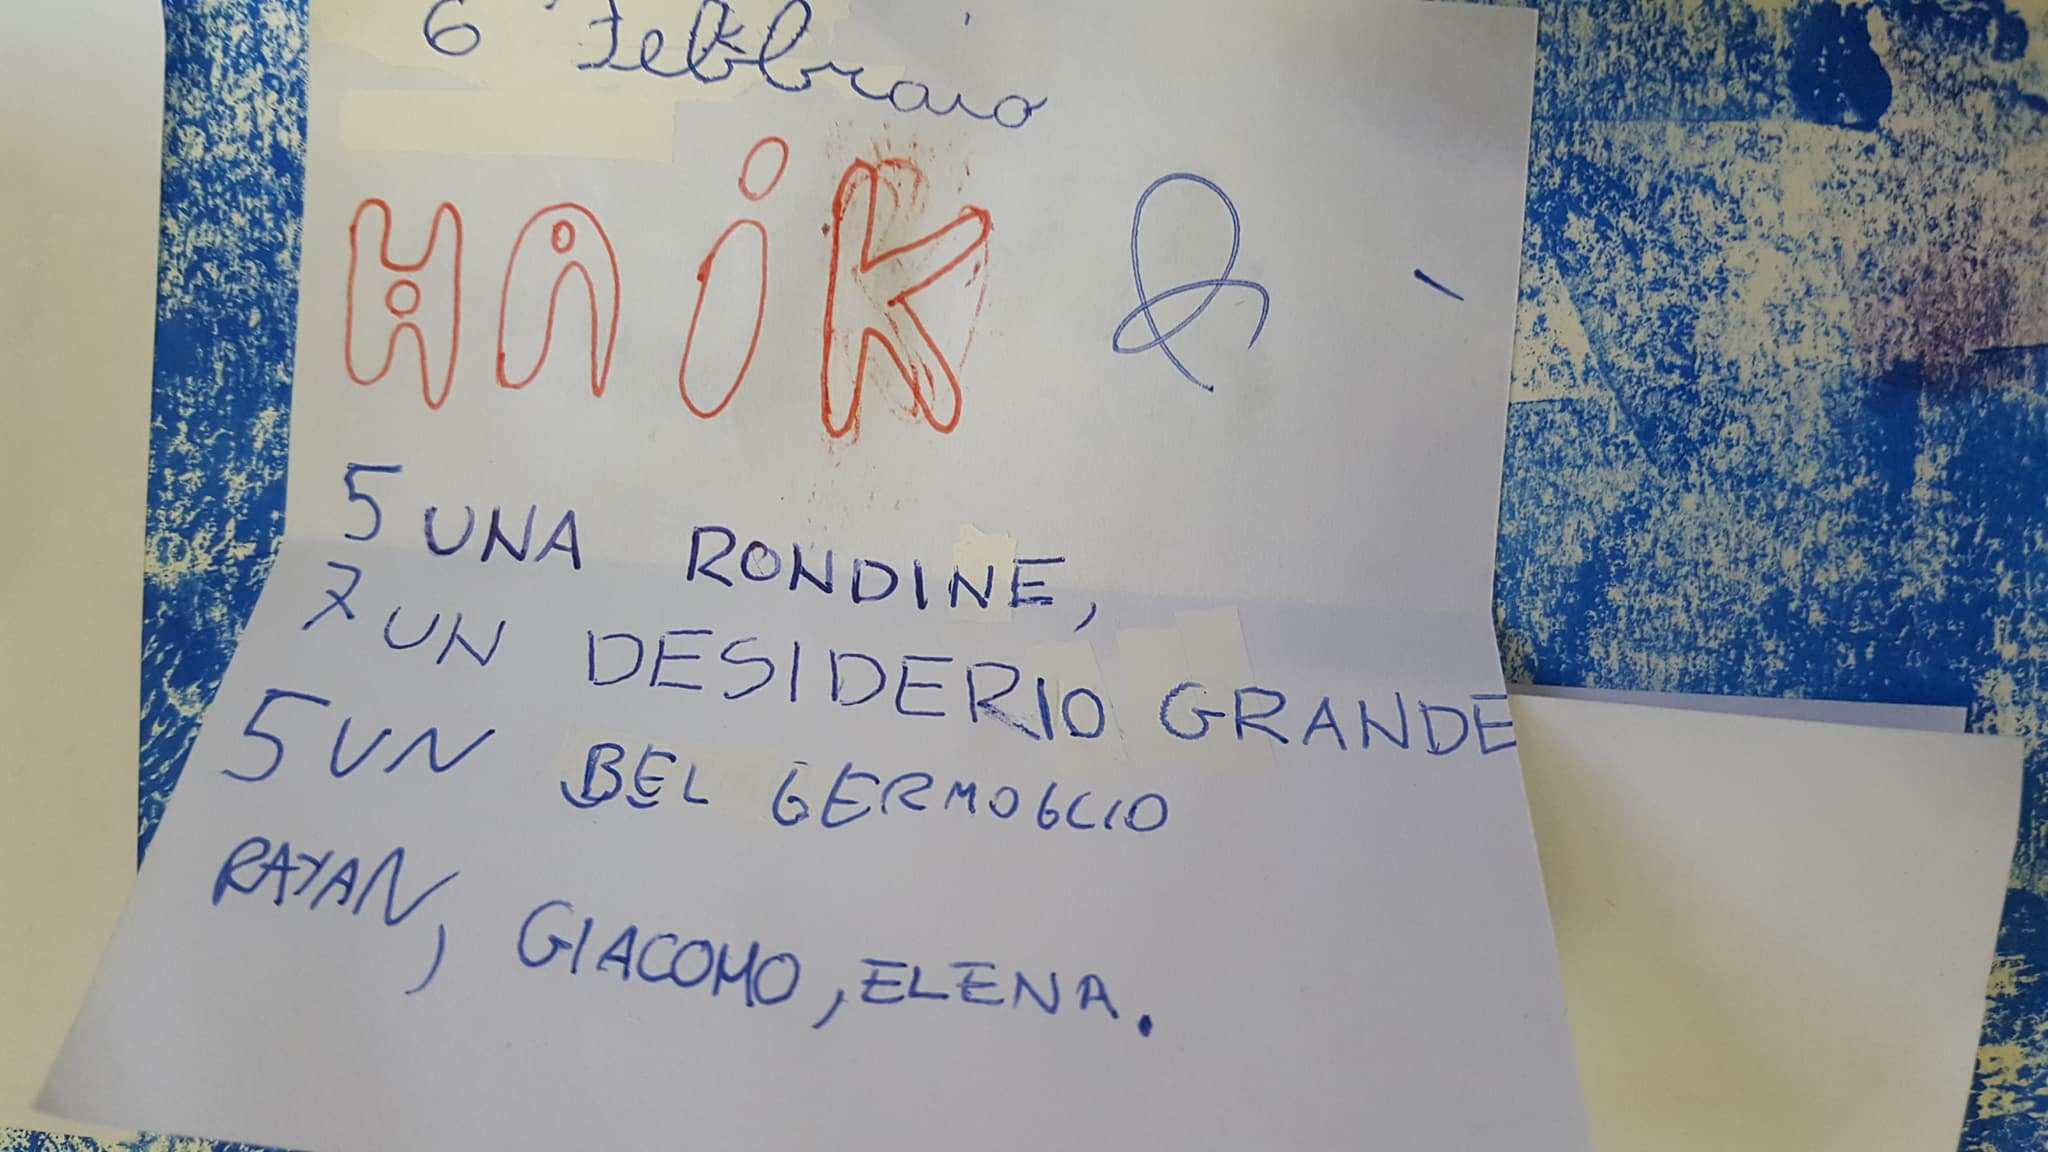 6 Febbraio
HAiK
5 UNA RONDINE,
7 UN DESIDERIO GRANDE
5 UN BEL GERMOGLIO
RAYAN, GIACOMO, ELENA.